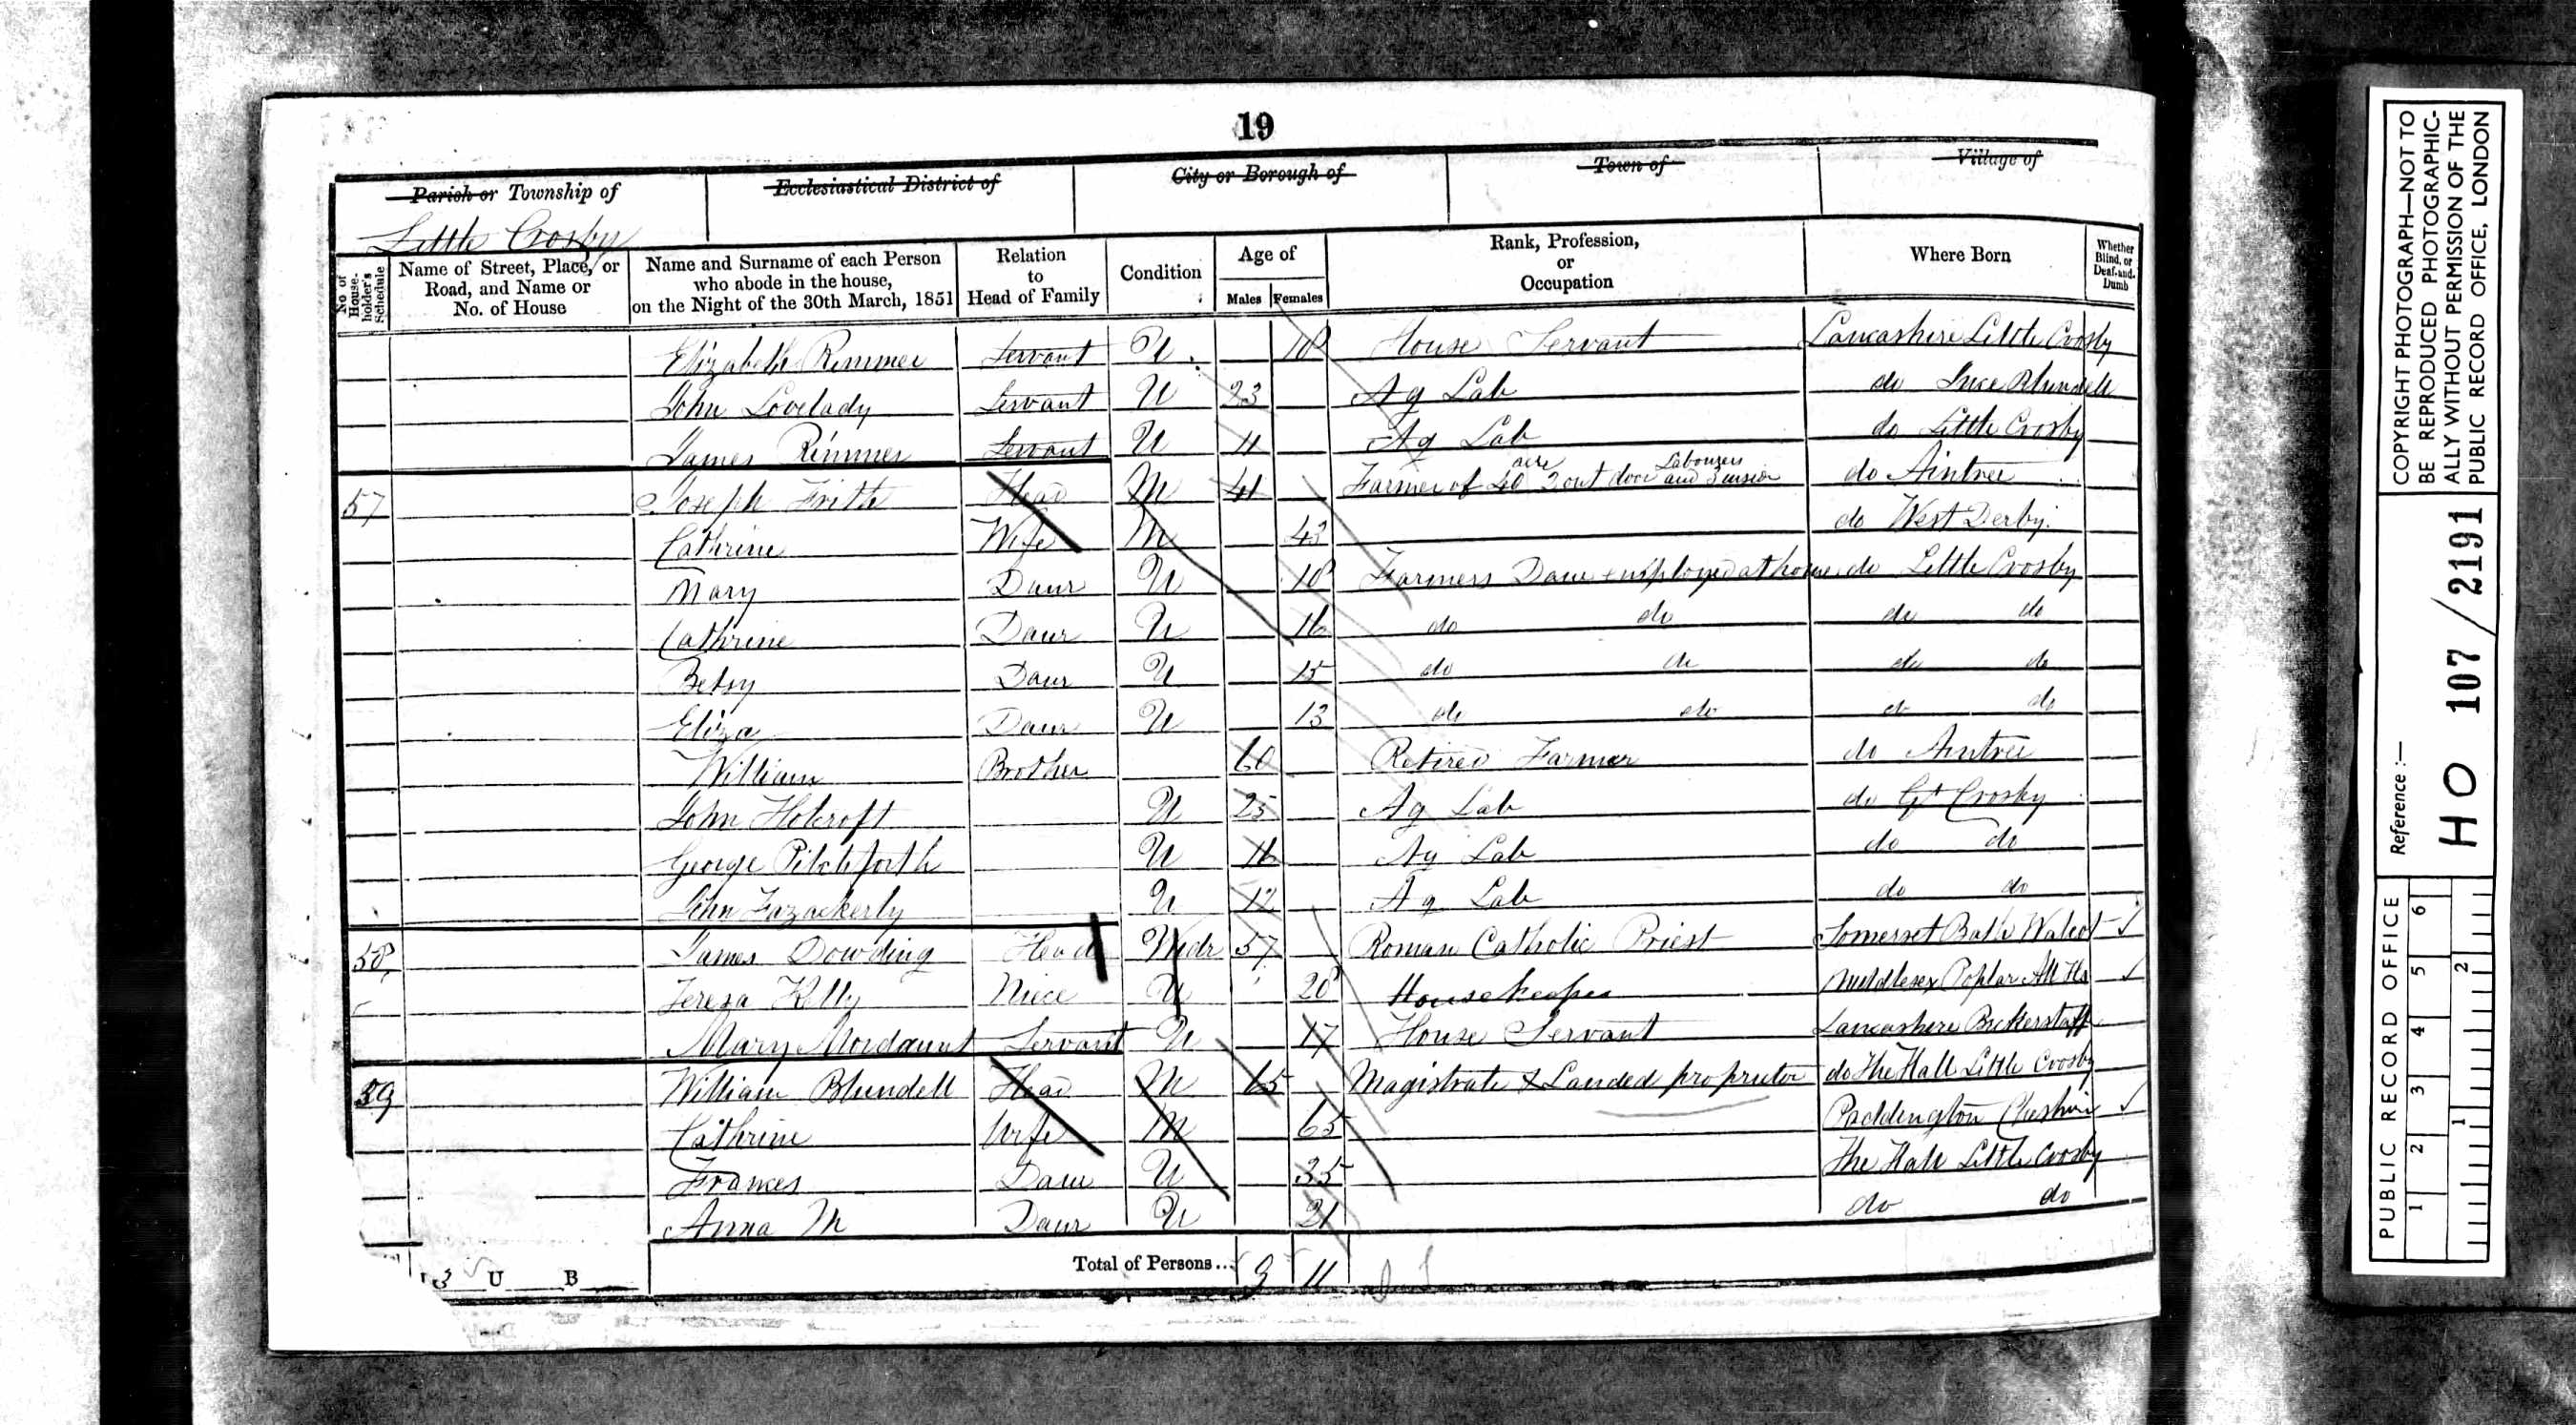 19
Parish or Township of Ecclesiastical District of City or Borough of Town of Village of
Little Crosby
No. of House-holder's Schedule Name of Street, Place, or Road, and Name or No. of House Name and Surname of each Person who abode in the house, on the Night of the 30th March, 1851 Relation to Head of Family Condition Age of Males Females Rank, Profession, or Occupation Where Born Whether Blind, or Deaf-and-Dumb
Elizabeth Rimmer Servant U 18 House Servant Lancashire Little Crosby
John Lovelady Servant U 23 Ag Lab do Ince Blundell
James Rimmer Servant U 11 Ag Lab do Little Crosby
57 Joseph Frith Head M 41 Farmer of 40 acre 3 out door Labourers and 3 do Aintree
Cathrine Wife M 43 do West Derby
Mary Daur U 18 Farmers Daur employed at home do Little Crosby
Cathrine Daur U 16 do do do do
Betsy Daur U 15 do do do do
Eliza Daur U 13 do do do do
William Brother 60 Retired Farmer do Aintree
John Holcroft U 25 Ag Lab do Gt Crosby
George Pitchforth U 16 Ag Lab do do
John Fazackerly U 12 Ag Lab do do
58 James Dowding Head Widr 57 Roman Catholic Priest Somerset Bath Walcot
Tereza Kelly Niece U 28 Housekeeper Middlesex Poplar All Hs
Mary Mordaunt Servant U 17 House Servant Lancashire Bickerstaff
59 William Blundell Head M 65 Magistrate & Landed proprietor do The Hall Little Crosby
Cathrine Wife M 65 Cheshire
Frances Daur U 35 The Hall Little Crosby
Anna M Daur U 21 do do
3 U B Total of Persons... 9 11
COPYRIGHT PHOTOGRAPH—NOT TO
BE REPRODUCED PHOTOGRAPHIC-
ALLY WITHOUT PERMISSION OF THE
PUBLIC RECORD OFFICE, LONDON
Reference :—
HO 107 / 2191
PUBLIC RECORD OFFICE
1 2 3 4 5 6
1 2